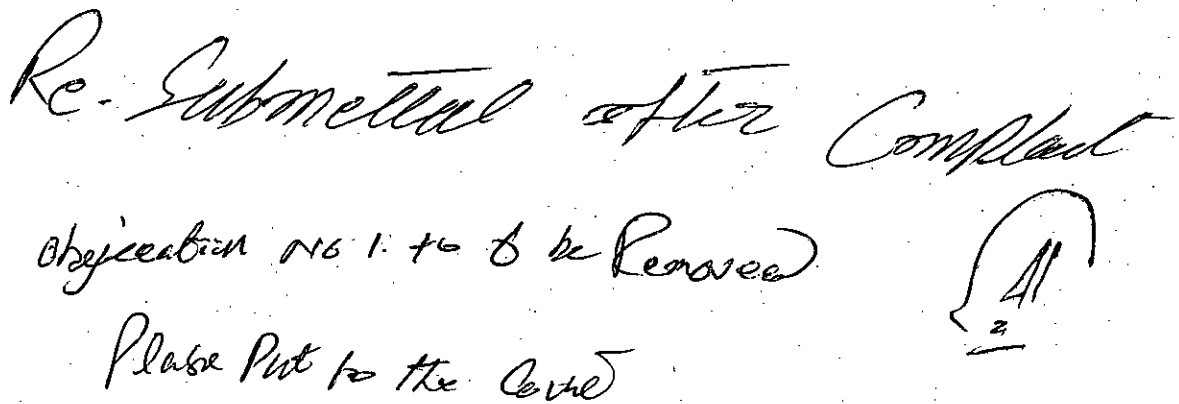 Re-Submettal after Complant
objeceation No 1. to 6 be Removed
Please Put to the Court